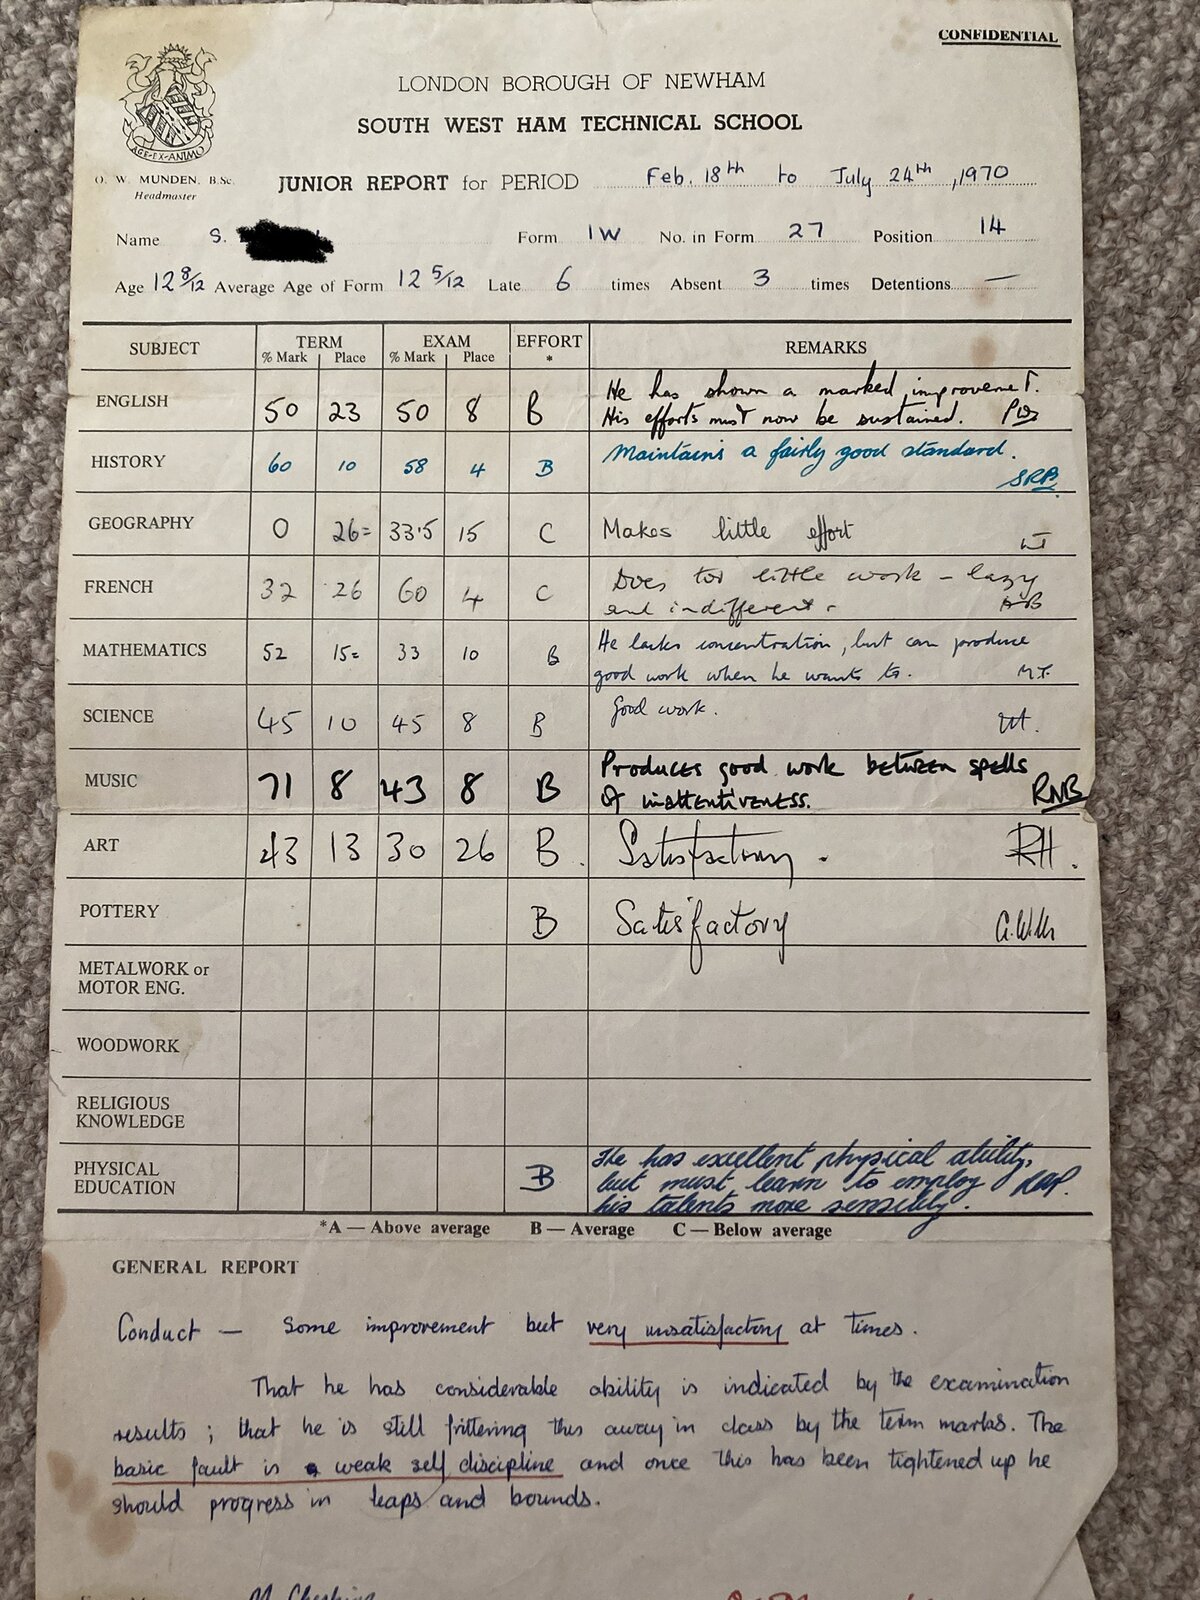 CONFIDENTIAL
LONDON BOROUGH OF NEWHAM
SOUTH WEST HAM TECHNICAL SCHOOL
AGE·EX·ANIMO
O. W. MUNDEN, B.Sc.
Headmaster
JUNIOR REPORT for PERIOD Feb. 18th to July 24th, 1970
Name S. Form 1W No. in Form 27 Position 14
Age 12 8/12 Average Age of Form 12 5/12 Late 6 times Absent 3 times Detentions —
SUBJECT TERM EXAM EFFORT REMARKS
% Mark Place % Mark Place *
ENGLISH 50 23 50 8 B He has shown a marked improvement.
His efforts must now be sustained.
HISTORY 60 10 58 4 B Maintains a fairly good standard.
SRB
GEOGRAPHY 0 26= 33·5 15 C Makes little effort
FRENCH 32 26 60 4 C Does too little work – lazy
and indifferent. AB
MATHEMATICS 52 15= 33 10 B He lacks concentration, but can produce
good work when he wants to. M.T.
SCIENCE 45 10 45 8 B Good work.
MUSIC 71 8 43 8 B Produces good work between spells
of inattentiveness. RNB
ART 43 13 30 26 B. Satisfactory. RH.
POTTERY B Satisfactory
METALWORK or
MOTOR ENG.
WOODWORK
RELIGIOUS
KNOWLEDGE
PHYSICAL
EDUCATION B He has excellent physical ability,
but must learn to employ
his talents more sensibly.
*A — Above average B — Average C — Below average
GENERAL REPORT
Conduct — Some improvement but very unsatisfactory at times.
That he has considerable ability is indicated by the examination
results; that he is still frittering this away in class by the term marks. The
basic fault is weak self discipline and once this has been tightened up he
should progress in leaps and bounds.